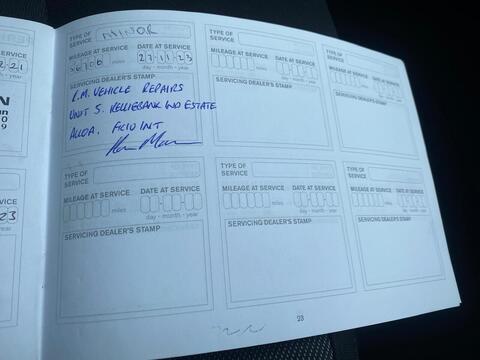 TYPE OF SERVICE MINOR
MILEAGE AT SERVICE DATE AT SERVICE
miles 27-11-23
day - month - year
SERVICING DEALER'S STAMP
R.M. VEHICLE REPAIRS
UNIT 5. KELLIEBANK IND ESTATE
ALLOA.
TYPE OF SERVICE
MILEAGE AT SERVICE DATE AT SERVICE
miles day - month - year
SERVICING DEALER'S STAMP
TYPE OF SERVICE
MILEAGE AT SERVICE DATE AT SERVICE
miles day - month - year
SERVICING DEALER'S STAMP
TYPE OF SERVICE
MILEAGE AT SERVICE DATE AT SERVICE
miles day - month - year
SERVICING DEALER'S STAMP
TYPE OF SERVICE
MILEAGE AT SERVICE DATE AT SERVICE
miles day - month - year
SERVICING DEALER'S STAMP
TYPE OF SERVICE
MILEAGE AT SERVICE DATE AT SERVICE
miles day - month - year
SERVICING DEALER'S STAMP
23